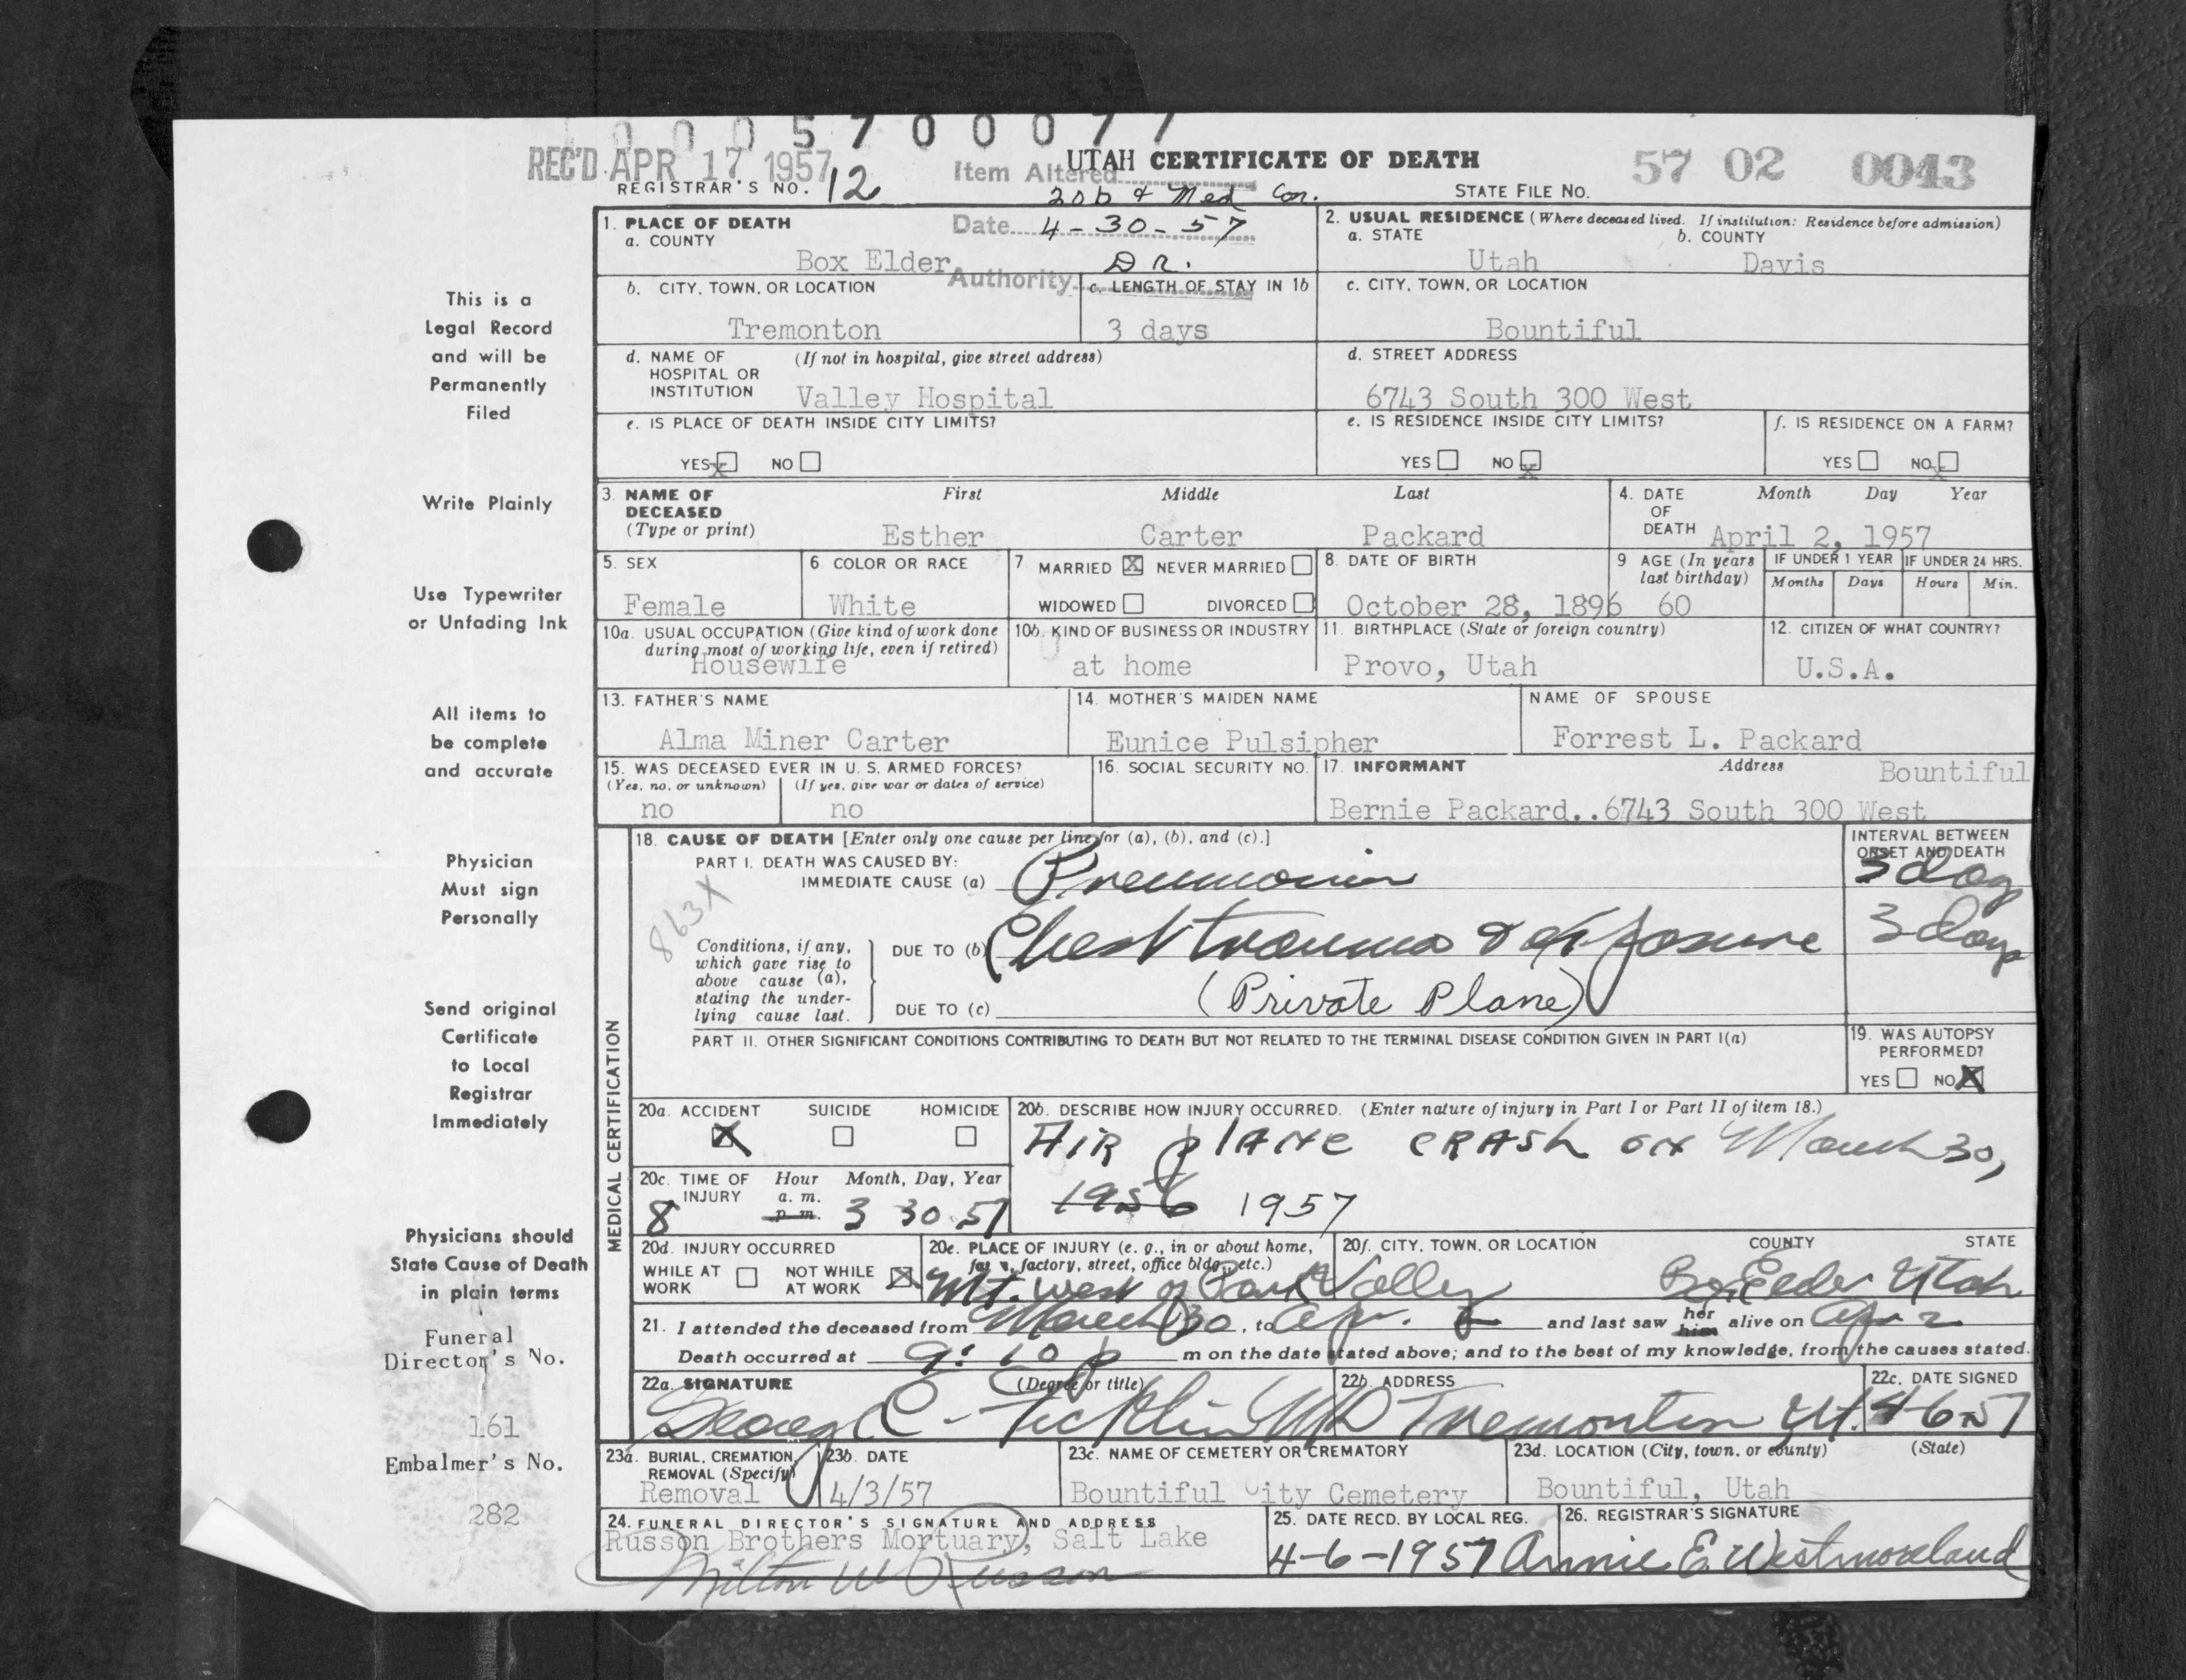 0 0 0 5 7 0 0 0 7 7
REC'D APR 17 1957
REGISTRAR'S NO. 12
Item Altered 20b & Med Cor.
UTAH CERTIFICATE OF DEATH
STATE FILE NO. 57 02 0043
1. PLACE OF DEATH
a. COUNTY
Box Elder
Date 4-30-57
Authority DR.
2. USUAL RESIDENCE (Where deceased lived. If institution: Residence before admission)
a. STATE b. COUNTY
Utah Davis
b. CITY, TOWN, OR LOCATION
Tremonton
c. LENGTH OF STAY IN 1b
3 days
c. CITY, TOWN, OR LOCATION
Bountiful
d. NAME OF (If not in hospital, give street address)
HOSPITAL OR
INSTITUTION Valley Hospital
d. STREET ADDRESS
6743 South 300 West
e. IS PLACE OF DEATH INSIDE CITY LIMITS?
YES X NO
e. IS RESIDENCE INSIDE CITY LIMITS?
YES NO X
f. IS RESIDENCE ON A FARM?
YES NO X
3. NAME OF DECEASED
(Type or print)
First Middle Last
Esther Carter Packard
4. DATE OF DEATH
Month Day Year
April 2, 1957
5. SEX
Female
6. COLOR OR RACE
White
7 MARRIED X NEVER MARRIED
WIDOWED DIVORCED
8. DATE OF BIRTH
October 28, 1896
9 AGE (In years last birthday)
60
IF UNDER 1 YEAR IF UNDER 24 HRS.
Months Days Hours Min.
10a. USUAL OCCUPATION (Give kind of work done
during most of working life, even if retired)
Housewife
10b. KIND OF BUSINESS OR INDUSTRY
at home
11. BIRTHPLACE (State or foreign country)
Provo, Utah
12. CITIZEN OF WHAT COUNTRY?
U.S.A.
13. FATHER'S NAME
Alma Miner Carter
14. MOTHER'S MAIDEN NAME
Eunice Pulsipher
NAME OF SPOUSE
Forrest L. Packard
15. WAS DECEASED EVER IN U. S. ARMED FORCES?
(Yes, no, or unknown) (If yes, give war or dates of service)
no no
16. SOCIAL SECURITY NO.
17. INFORMANT Address Bountiful
Bernie Packard..6743 South 300 West
MEDICAL CERTIFICATION
18. CAUSE OF DEATH [Enter only one cause per line for (a), (b), and (c).]
PART I. DEATH WAS CAUSED BY:
IMMEDIATE CAUSE (a) Pneumonia
INTERVAL BETWEEN
ONSET AND DEATH
3 days
863X
Conditions, if any,
which gave rise to
above cause (a),
stating the under-
lying cause last.
DUE TO (b) Chest trauma & exposure
3 days
(Private Plane)
DUE TO (c)
PART II. OTHER SIGNIFICANT CONDITIONS CONTRIBUTING TO DEATH BUT NOT RELATED TO THE TERMINAL DISEASE CONDITION GIVEN IN PART I(a)
19. WAS AUTOPSY
PERFORMED?
YES NO X
20a. ACCIDENT SUICIDE HOMICIDE
X
20b. DESCRIBE HOW INJURY OCCURRED. (Enter nature of injury in Part I or Part II of item 18.)
AIR PLANE CRASH ON March 30,
1956 1957
20c. TIME OF Hour Month, Day, Year
INJURY a. m.
8 p. m. 3 30 57
20d. INJURY OCCURRED
WHILE AT WORK NOT WHILE AT WORK X
20e. PLACE OF INJURY (e. g., in or about home,
farm, factory, street, office bldg., etc.)
Mt. west of Park Valley
20f. CITY, TOWN, OR LOCATION COUNTY STATE
Box Elder Utah
21. I attended the deceased from March 30, to Apr. 2 and last saw her him alive on Apr 2
Death occurred at 9:10 p m on the date stated above; and to the best of my knowledge, from the causes stated.
22a. SIGNATURE (Degree or title)
George C. Ficklin MD
22b. ADDRESS
Tremonton Ut.
22c. DATE SIGNED
4-6-57
23a. BURIAL, CREMATION,
REMOVAL (Specify)
Removal
23b. DATE
4/3/57
23c. NAME OF CEMETERY OR CREMATORY
Bountiful City Cemetery
23d. LOCATION (City, town, or county) (State)
Bountiful, Utah
24. FUNERAL DIRECTOR'S SIGNATURE AND ADDRESS
Russon Brothers Mortuary, Salt Lake
Milton W Russon
25. DATE RECD. BY LOCAL REG.
4-6-1957
26. REGISTRAR'S SIGNATURE
Annie E. Westmoreland
This is a
Legal Record
and will be
Permanently
Filed
Write Plainly
Use Typewriter
or Unfading Ink
All items to
be complete
and accurate
Physician
Must sign
Personally
Send original
Certificate
to Local
Registrar
Immediately
Physicians should
State Cause of Death
in plain terms
Funeral
Director's No.
161
Embalmer's No.
282